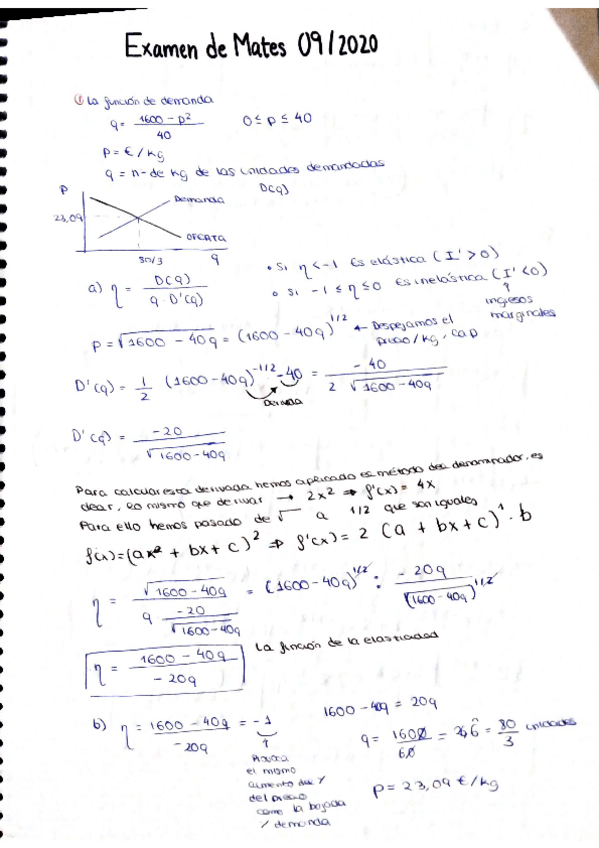 Examen de Mates 09/2020
① La función de demanda
q = 1600 - p² / 40    0 ≤ p ≤ 40
p = € / kg
q = n- de kg de las unidades demandadas
D(q)
P
Demanda
23,09
OFERTA
80/3    q
• Si η < -1 Es elástica ( I' > 0 )
• Si -1 ≤ η ≤ 0 Es inelástica ( I' < 0 )
ingresos
marginales
a) η = D(q) / q · D'(q)
p = √1600 - 40q = (1600 - 40q)^1/2 ← Despejamos el
precio / kg, la p
D'(q) = 1/2 (1600 - 40q)^-1/2 · -40 = -40 / 2 √1600 - 40q
Derivada
D'(q) = -20 / √1600 - 40q
Para calcular esta derivada hemos aplicado el método del denominador, es
decir, lo mismo que derivar → 2x² ⇒ f'(x) = 4x
Para ello hemos pasado de √ a 1/2 que son iguales
f(x) = (ax² + bx + c)² ⇒ f'(x) = 2 (a + bx + c)¹ · b
η = √1600 - 40q / q · -20 / √1600 - 40q = (1600 - 40q)^1/2 : -20q / (1600 - 40q)^1/2
η = 1600 - 40q / -20q    La función de la elasticidad
b) η = 1600 - 40q / -20q = -1    1600 - 40q = 20q
q = 1600 / 60 = 26,6 = 80/3 unidades
p = 23,09 € / kg
el mismo
aumento del %
del precio
como la bajada
% demanda